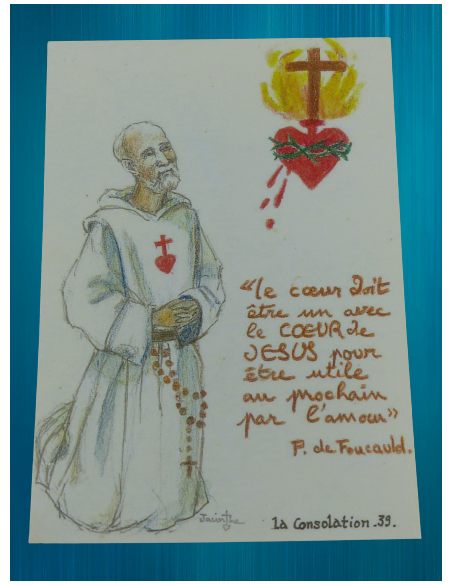 “le cœur doit
être un avec
le CŒUR de
JESUS pour
être utile
au prochain
par l'amour”
P. de Foucauld.
Jacinthe
La Consolation.39.